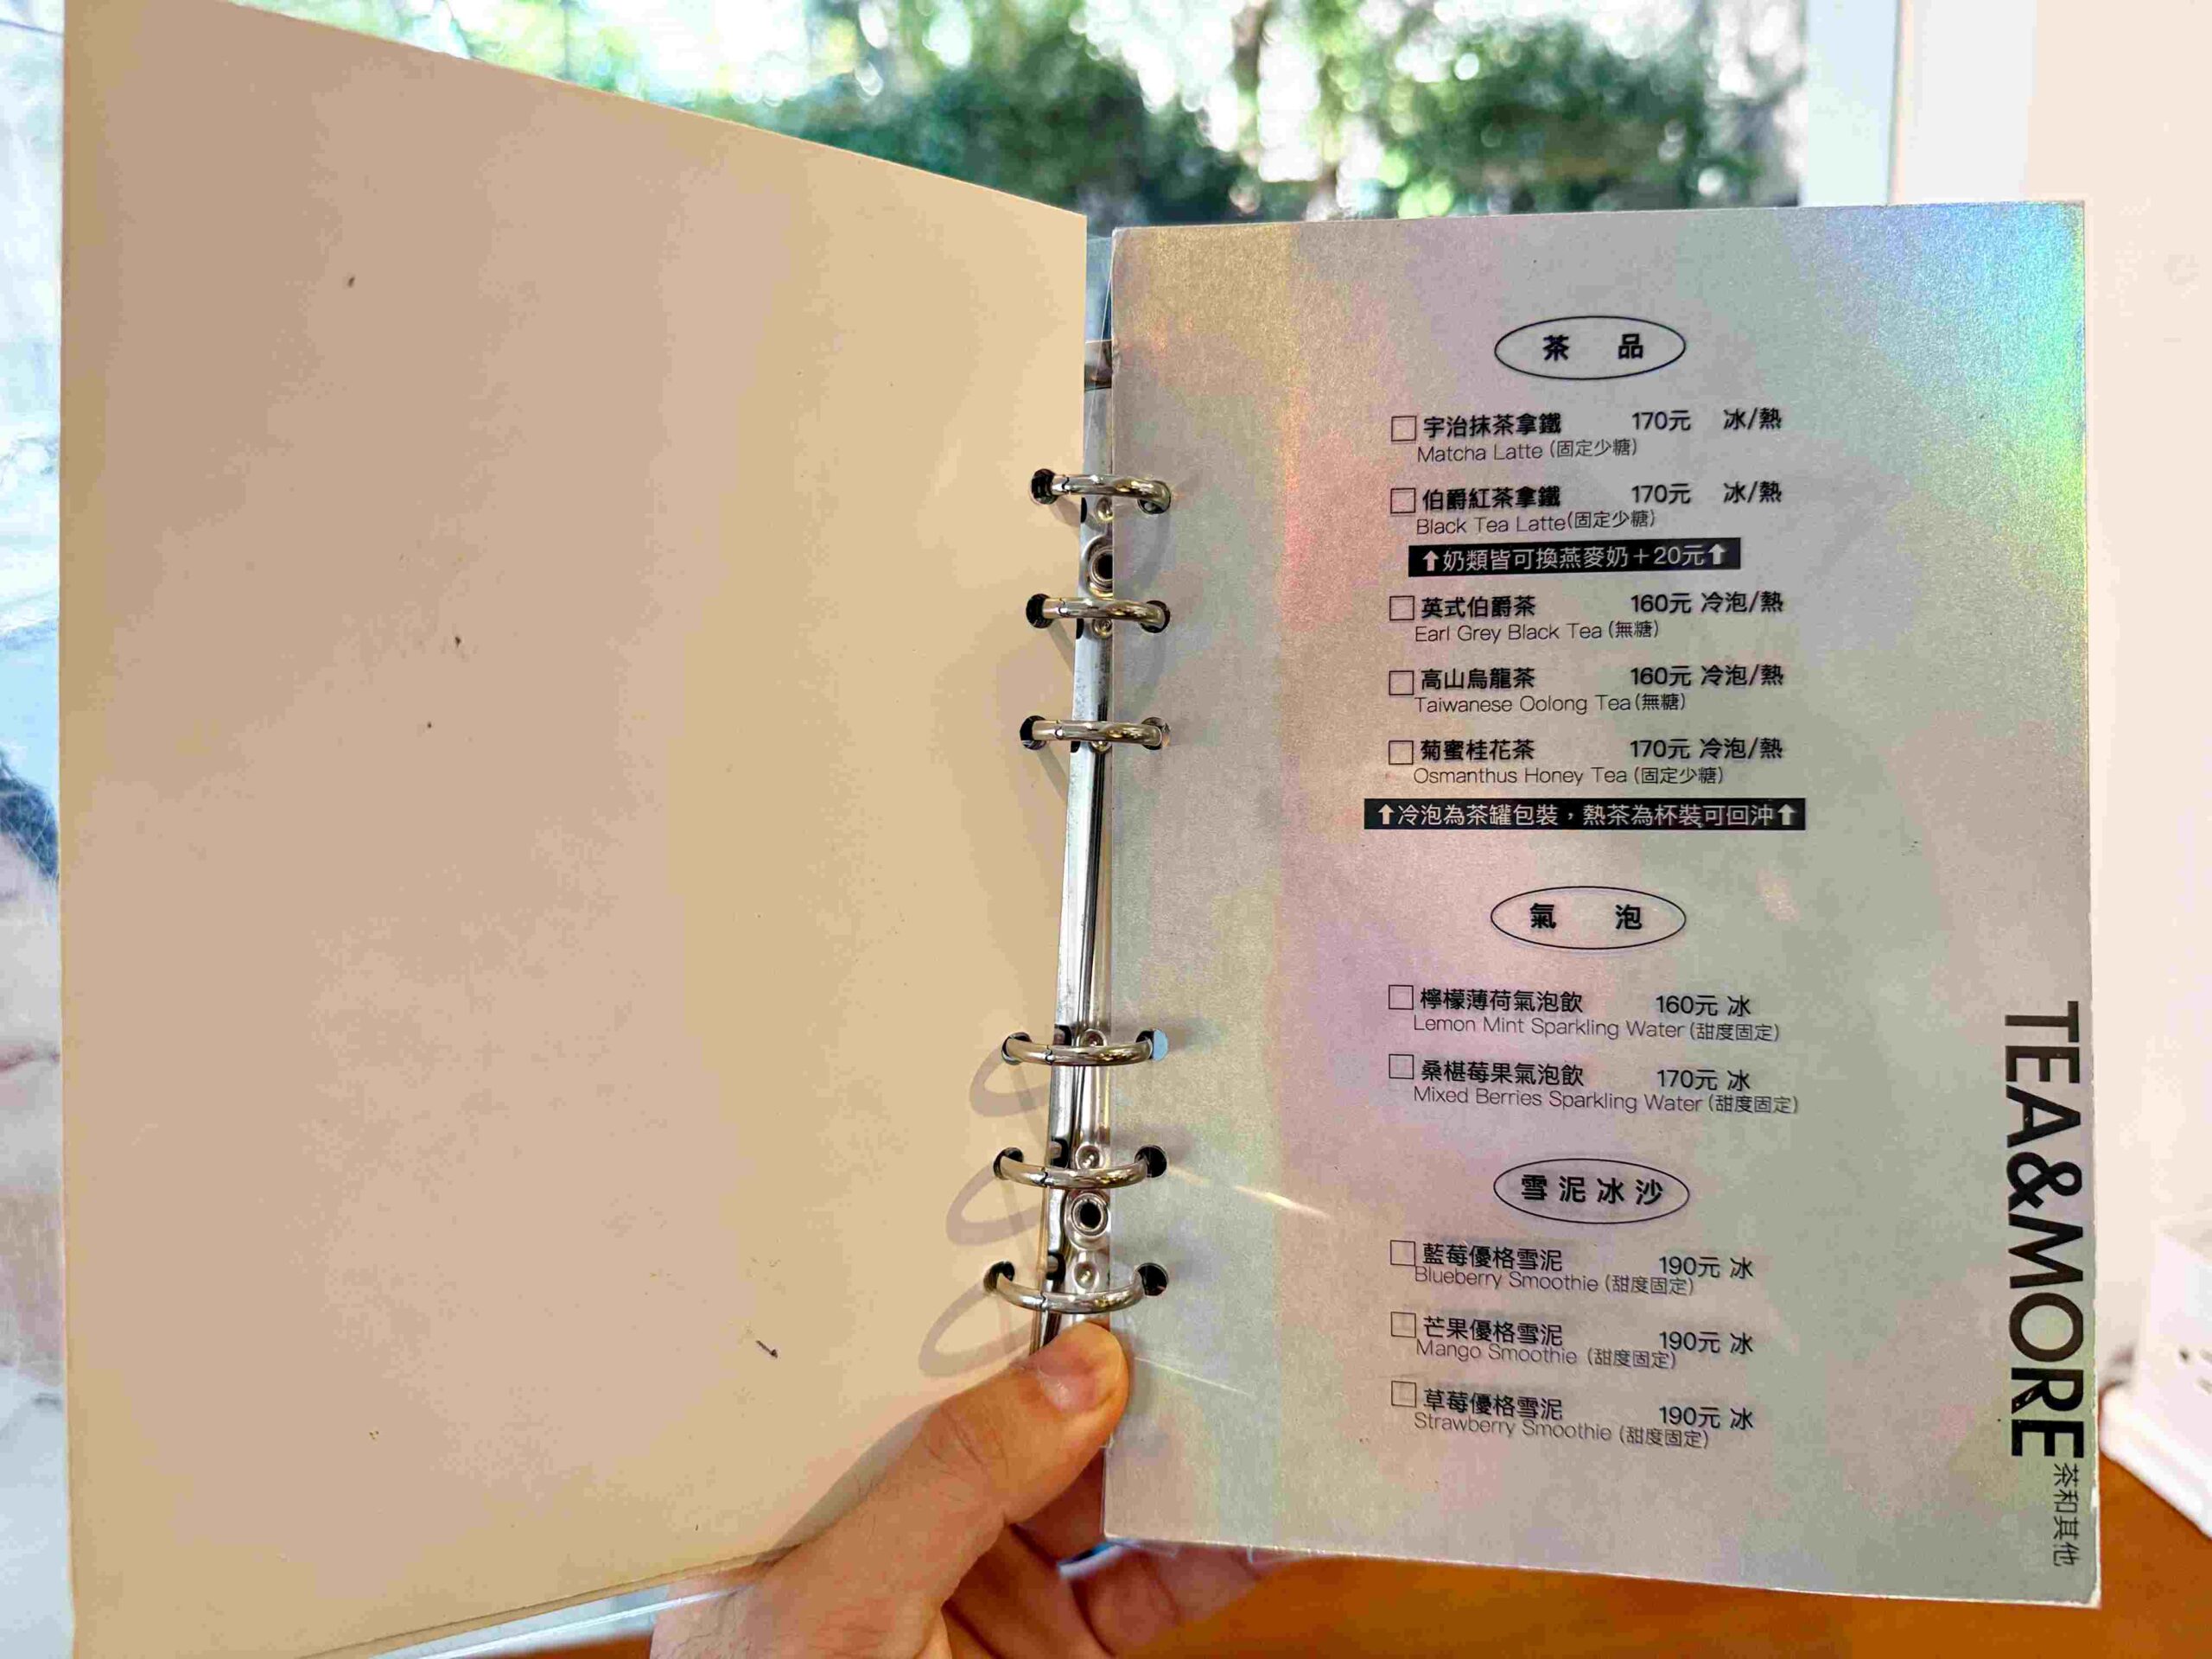 茶品
宇治抹茶拿鐵 170元 冰/熱
Matcha Latte (固定少糖)
伯爵紅茶拿鐵 170元 冰/熱
Black Tea Latte(固定少糖)
⬆奶類皆可換燕麥奶+20元⬆
英式伯爵茶 160元 冷泡/熱
Earl Grey Black Tea (無糖)
高山烏龍茶 160元 冷泡/熱
Taiwanese Oolong Tea (無糖)
菊蜜桂花茶 170元 冷泡/熱
Osmanthus Honey Tea (固定少糖)
⬆冷泡為茶罐包裝，熱茶為杯裝可回沖⬆
氣泡
檸檬薄荷氣泡飲 160元 冰
Lemon Mint Sparkling Water (甜度固定)
桑椹莓果氣泡飲 170元 冰
Mixed Berries Sparkling Water (甜度固定)
雪泥冰沙
藍莓優格雪泥 190元 冰
Blueberry Smoothie (甜度固定)
芒果優格雪泥 190元 冰
Mango Smoothie (甜度固定)
草莓優格雪泥 190元 冰
Strawberry Smoothie (甜度固定)
TEA&MORE 茶和其他